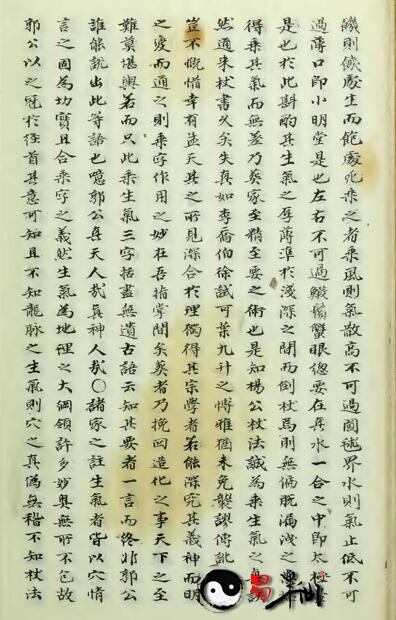 饑則傷廢生而飽廢死乘之者乘風則氣散高不可過圓毬界水則氣止低不可
過薄口即小明堂是也左右不可過鰕鬚蟹眼總要在真水一合之中即太極
是也於此斟酌其生氣之厚薄準於淺深之間而倒杖焉則無偏脫漏洩之
得乘其氣而無差乃葬家至精至要之術也是知楊公杖法誠為乘生氣之真
然通朱杖書久矣失真如李喬伯徐試可葉九升之博雅猶未免襲謬傳訛
豈不慨惜幸有孟天其之所見深合於理獨得其宗學者若能深究其義神而明
之變而通之則乘字作用之妙在吾指掌間矣葬者乃挽回造化之事天下之至
難莫堪輿若而只此乘生氣三字括盡無遺古語云知其要者一言而終非郭公
誰能說出此等語也噫郭公真天人哉真神人哉○諸家之註生氣者皆以穴情
言之固為切實且合乘字之義然生氣為地理之大綱領許多妙奧無所不包故
郭公以之冠於經首其意可知且不知龍脉之生氣則穴之真偽無稽不知杖法
易